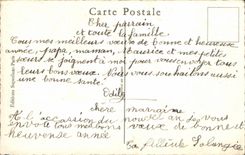 Carte Postale
Cher parrain
et toute la famille
Tous mes meilleurs vœux de bonne et heureuse
année, papa, maman,
sœurs se joignent à moi pour vous envoyer tous
leurs bons vœux. Nous vous souhaitons aussi
une bonne santé.
Odile
chère marraine
A l'occasion du nouvel an je vous
envoie tous mes vœux de bonne et
heureuse année
Ta filleule Solange
Editions